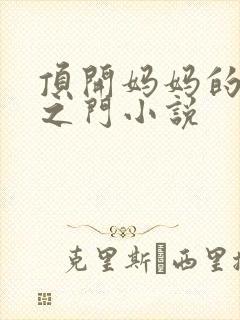 頂開妈妈的
之門小説
克里斯 西里